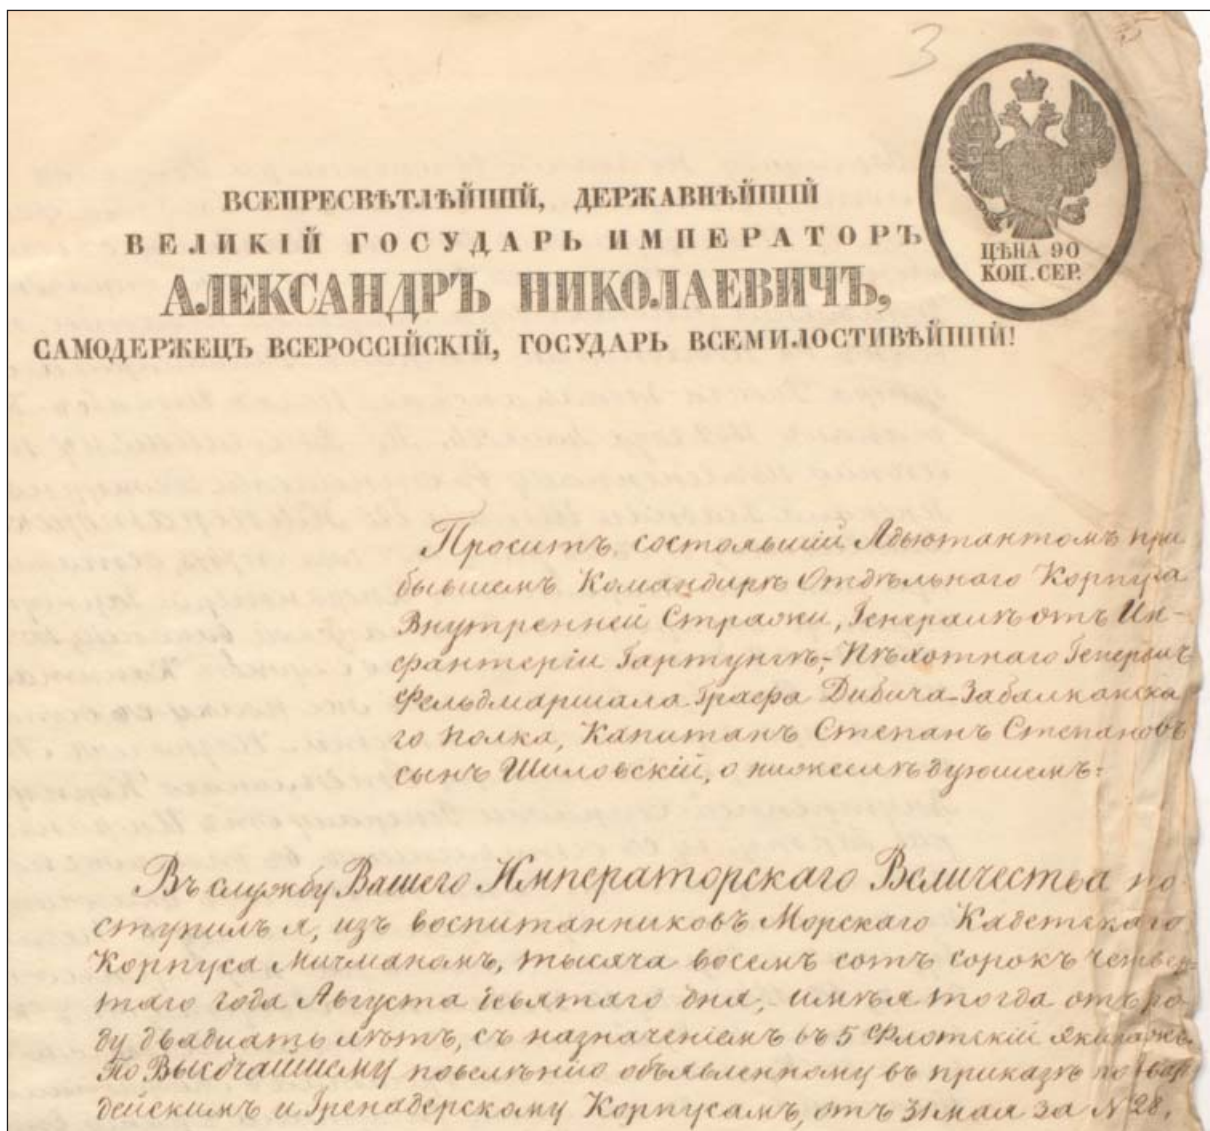 3
ЦѢНА 90
КОП. СЕР.
ВСЕПРЕСВѢТЛѢЙШІЙ, ДЕРЖАВНѢЙШІЙ
ВЕЛИКІЙ ГОСУДАРЬ ИМПЕРАТОРЪ
АЛЕКСАНДРЪ НИКОЛАЕВИЧЪ,
САМОДЕРЖЕЦЪ ВСЕРОССІЙСКІЙ, ГОСУДАРЬ ВСЕМИЛОСТИВѢЙШІЙ!
Проситъ, состоявшій Адьютантомъ при
бывшемъ Командирѣ Отдѣльнаго Корпуса
Внутренней Стражи, Генералѣ отъ Ин-
фантеріи Гартунгѣ,- Пѣхотнаго Генералъ
Фельдмаршала Графа Дибича-Забалканска
го полка, Капитанъ Степанъ Степановъ
сынъ Шиловскій, о нижеслѣдующемъ:
Въ службу Вашего Императорскаго Величества по-
ступилъ я, изъ воспитанниковъ Морскаго Кадетскаго
Корпуса Мичманомъ, тысяча восемь сотъ сорокъ четвер-
таго года Августа девятаго дня, имѣя тогда отъ ро-
ду двадцать лѣтъ, съ назначеніемъ въ 5 Флотскій Экипажъ.
По Высочайшему повелѣнію объявленному въ приказѣ по Гвар
дейскимъ и Гренадерскому Корпусамъ, отъ 31 мая за № 28,